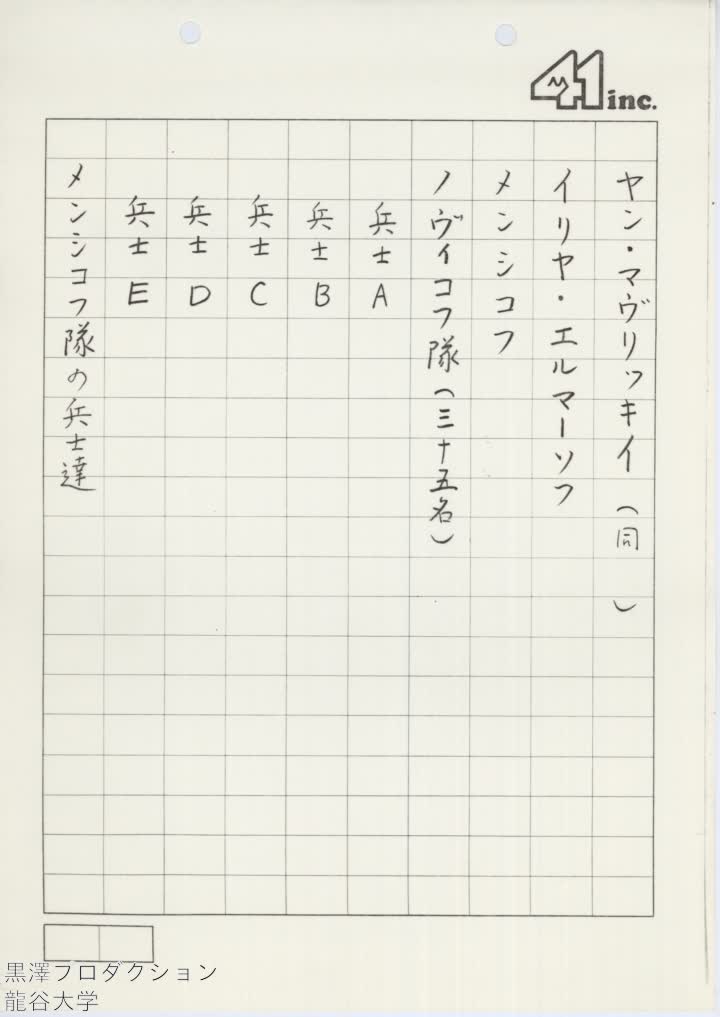 41 inc.
ヤン・マヴリッキイ（同　）
イリヤ・エルマーソフ
メンシコフ
ノヴィコフ隊（三十五名）
兵士A
兵士B
兵士C
兵士D
兵士E
メンシコフ隊の兵士達
黒澤プロダクション
龍谷大学